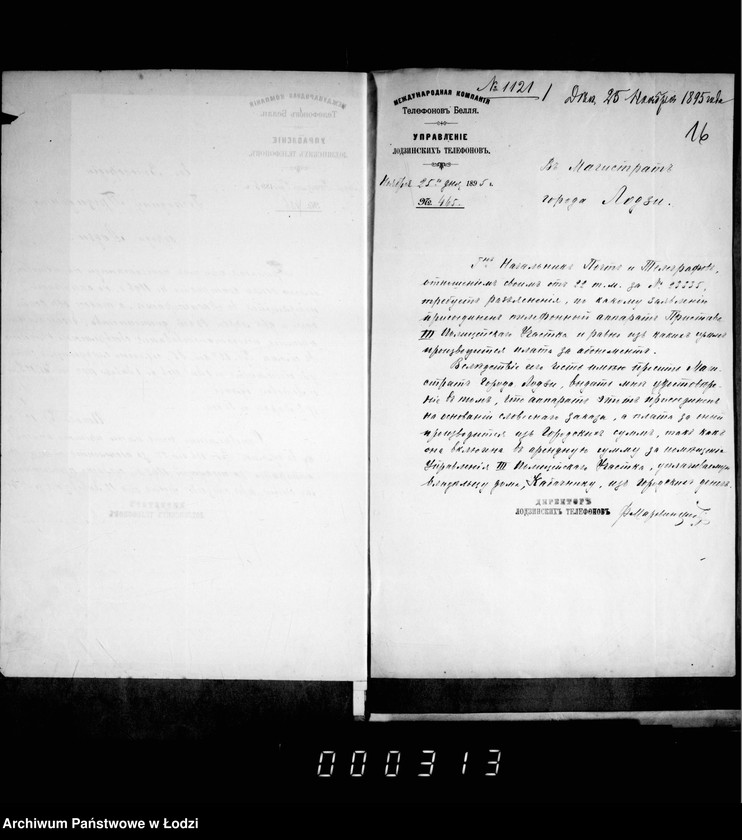 № 1121
Дня 25 Ноября 1895 года
16
МЕЖДУНАРОДНАЯ КОМПАНІЯ
Телефоновъ Белля.
УПРАВЛЕНІЕ
ЛОДЗИНСКИХЪ ТЕЛЕФОНОВЪ.
Ноября 25го дня 1895 г.
№ 465.
Въ Магистратъ
города Лодзи.
Гнъ Начальникъ Почтъ и Телеграфовъ,
отношеніемъ своимъ отъ 22 т. м. за № 23235,
требуетъ разъясненія, по какому заявленію
присоединенъ телефонный аппаратъ Пристава
III Полицейскаго Участка и равно изъ какихъ суммъ
производится плата за абонементъ.
Вслѣдствіе сего честь имѣю просить Маги-
стратъ Города Лодзи, выдать мнѣ удостовѣре-
ніе въ томъ, что аппаратъ этотъ присоединенъ
на основаніи словеснаго заказа, а плата за оный
производится изъ Городскихъ суммъ, такъ какъ
она включена въ арендную сумму за помѣщеніе
Управленія III Полицейскаго Участка, уплачиваемую
владѣльцу дома, изъ Городскихъ денегъ.
ДИРЕКТОРЪ
ЛОДЗИНСКИХЪ ТЕЛЕФОНОВЪ
000313
Archiwum Państwowe w Łodzi